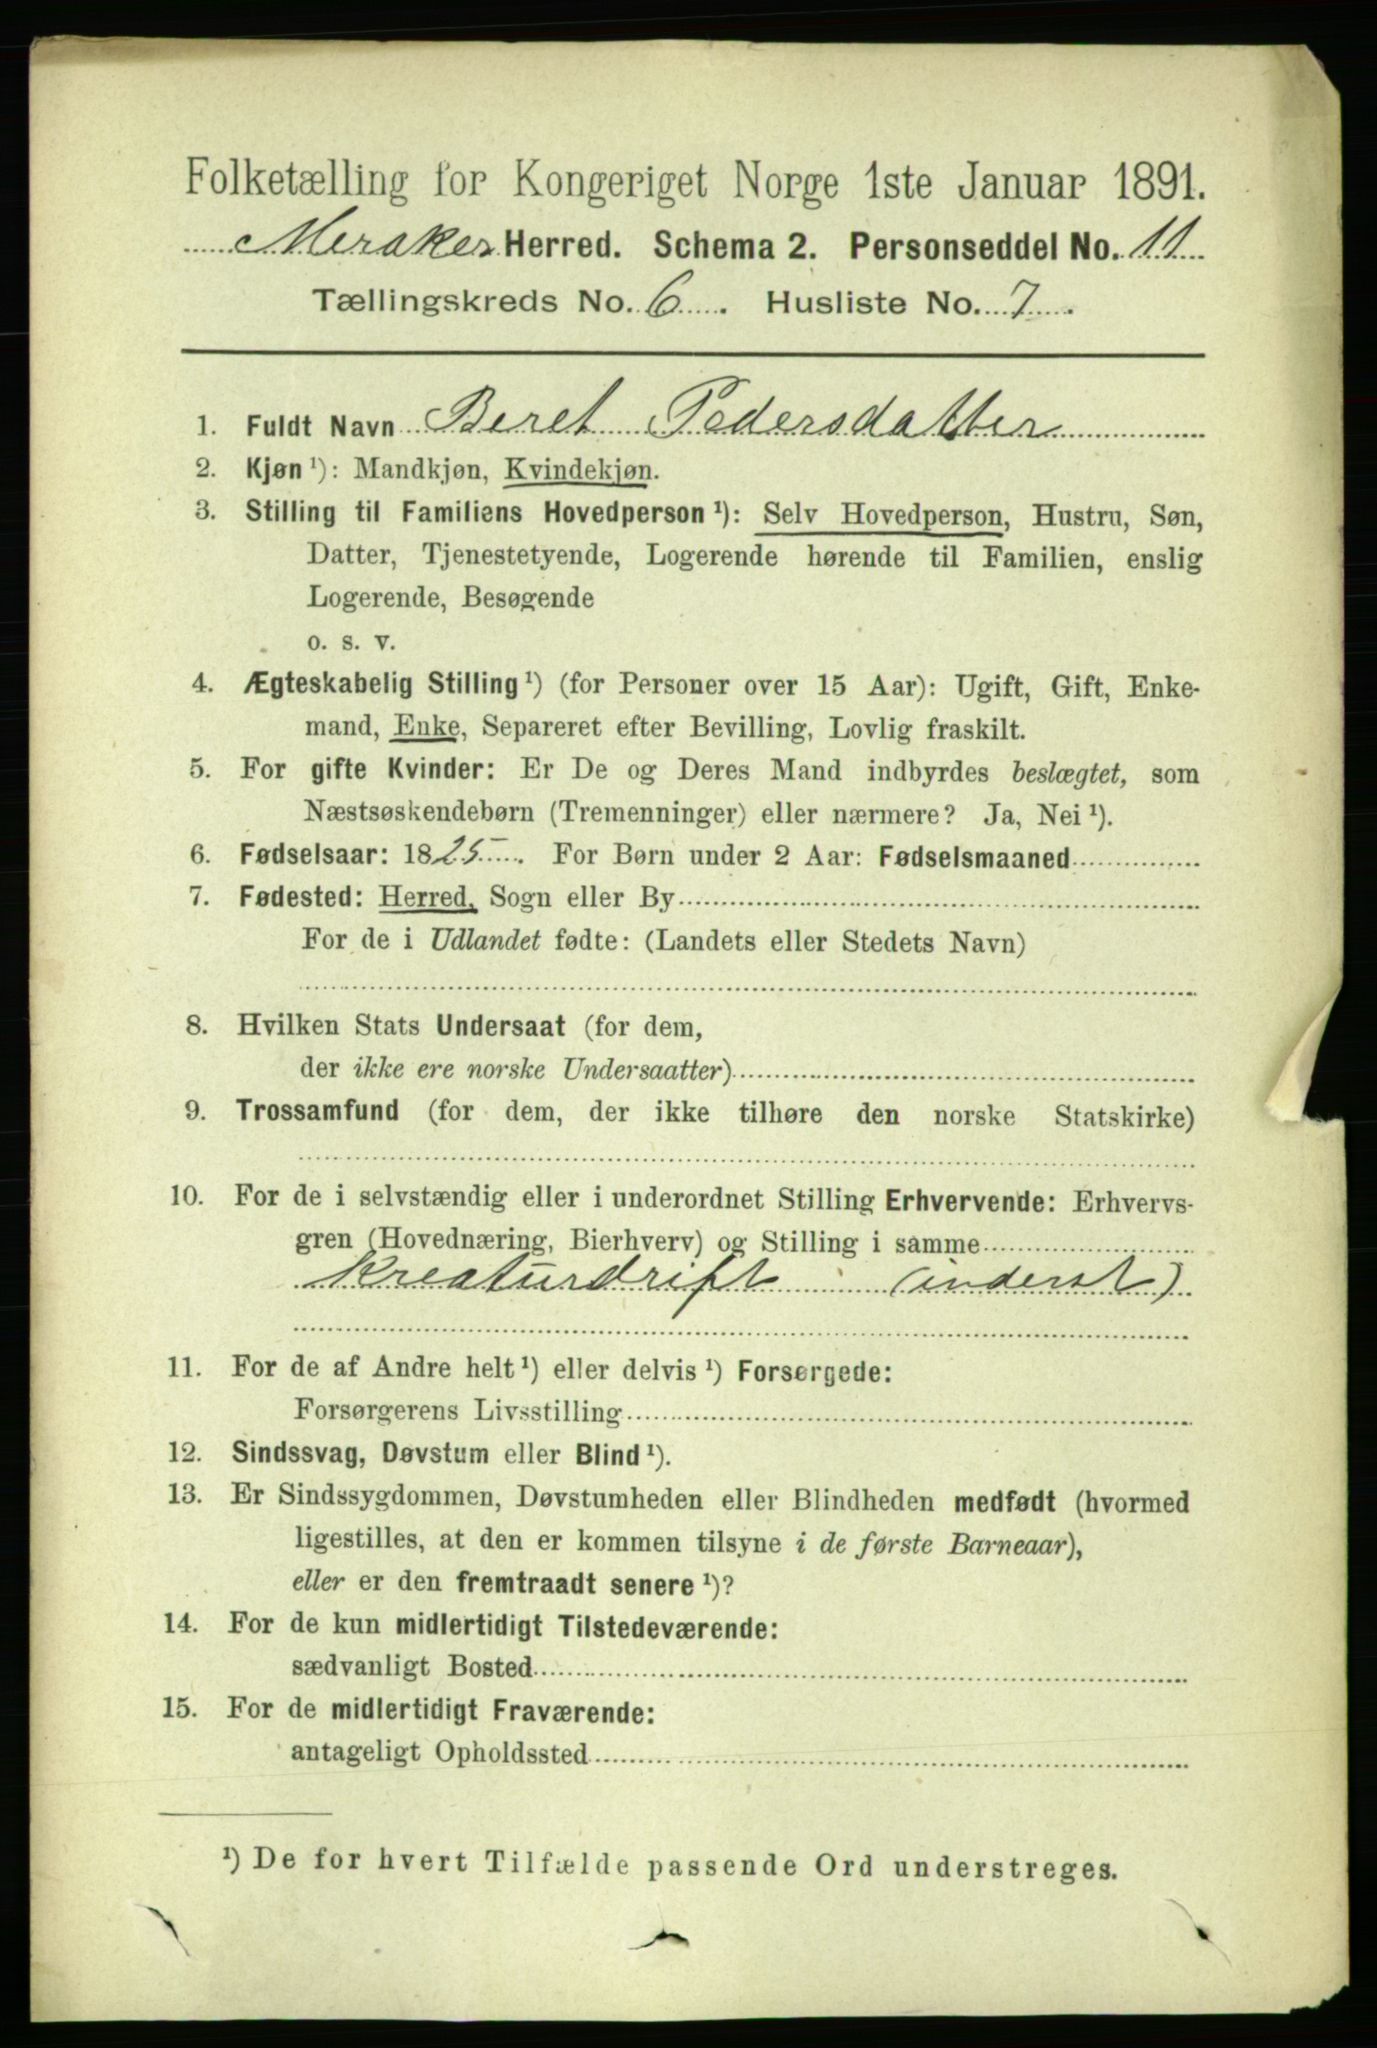 Folketælling for Kongeriget Norge 1ste Januar 1891.
Meraker Herred. Schema 2. Personseddel No. 11
Tællingskreds No. 6. Husliste No. 7.
1. Fuldt Navn Beret Pedersdatter
2. Kjøn ¹): Mandkjøn, Kvindekjøn.
3. Stilling til Familiens Hovedperson ¹): Selv Hovedperson, Hustru, Søn,
Datter, Tjenestetyende, Logerende hørende til Familien, enslig
Logerende, Besøgende
o. s. v.
4. Ægteskabelig Stilling ¹) (for Personer over 15 Aar): Ugift, Gift, Enke-
mand, Enke, Separeret efter Bevilling, Lovlig fraskilt.
5. For gifte Kvinder: Er De og Deres Mand indbyrdes beslægtet, som
Næstsøskendebørn (Tremenninger) eller nærmere? Ja, Nei ¹).
6. Fødselsaar: 1825. For Børn under 2 Aar: Fødselsmaaned
7. Fødested: Herred, Sogn eller By
For de i Udlandet fødte: (Landets eller Stedets Navn)
8. Hvilken Stats Undersaat (for dem,
der ikke ere norske Undersaatter)
9. Trossamfund (for dem, der ikke tilhøre den norske Statskirke)
10. For de i selvstændig eller i underordnet Stilling Erhvervende: Erhvervs-
gren (Hovednæring, Bierhverv) og Stilling i samme
Kreaturdrift (inderst)
11. For de af Andre helt ¹) eller delvis ¹) Forsørgede:
Forsørgerens Livsstilling
12. Sindssvag, Døvstum eller Blind ¹).
13. Er Sindssygdommen, Døvstumheden eller Blindheden medfødt (hvormed
ligestilles, at den er kommen tilsyne i de første Barneaar),
eller er den fremtraadt senere ¹)?
14. For de kun midlertidigt Tilstedeværende:
sædvanligt Bosted
15. For de midlertidigt Fraværende:
antageligt Opholdssted
¹) De for hvert Tilfælde passende Ord understreges.